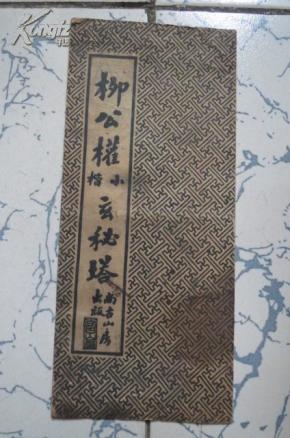 柳公權小楷玄秘塔
尚古山房
出版
Kongfz